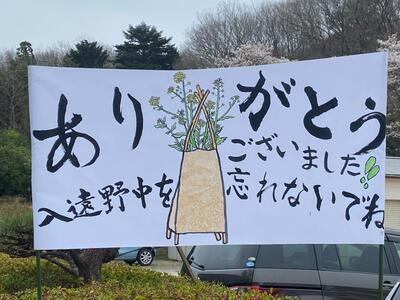 ありがとう
ございました!!
入遠野中を忘れないでね